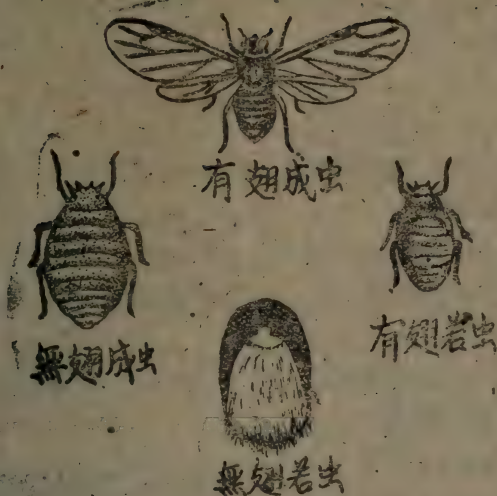 有翅成虫
無翅成虫
有翅若虫
無翅若虫